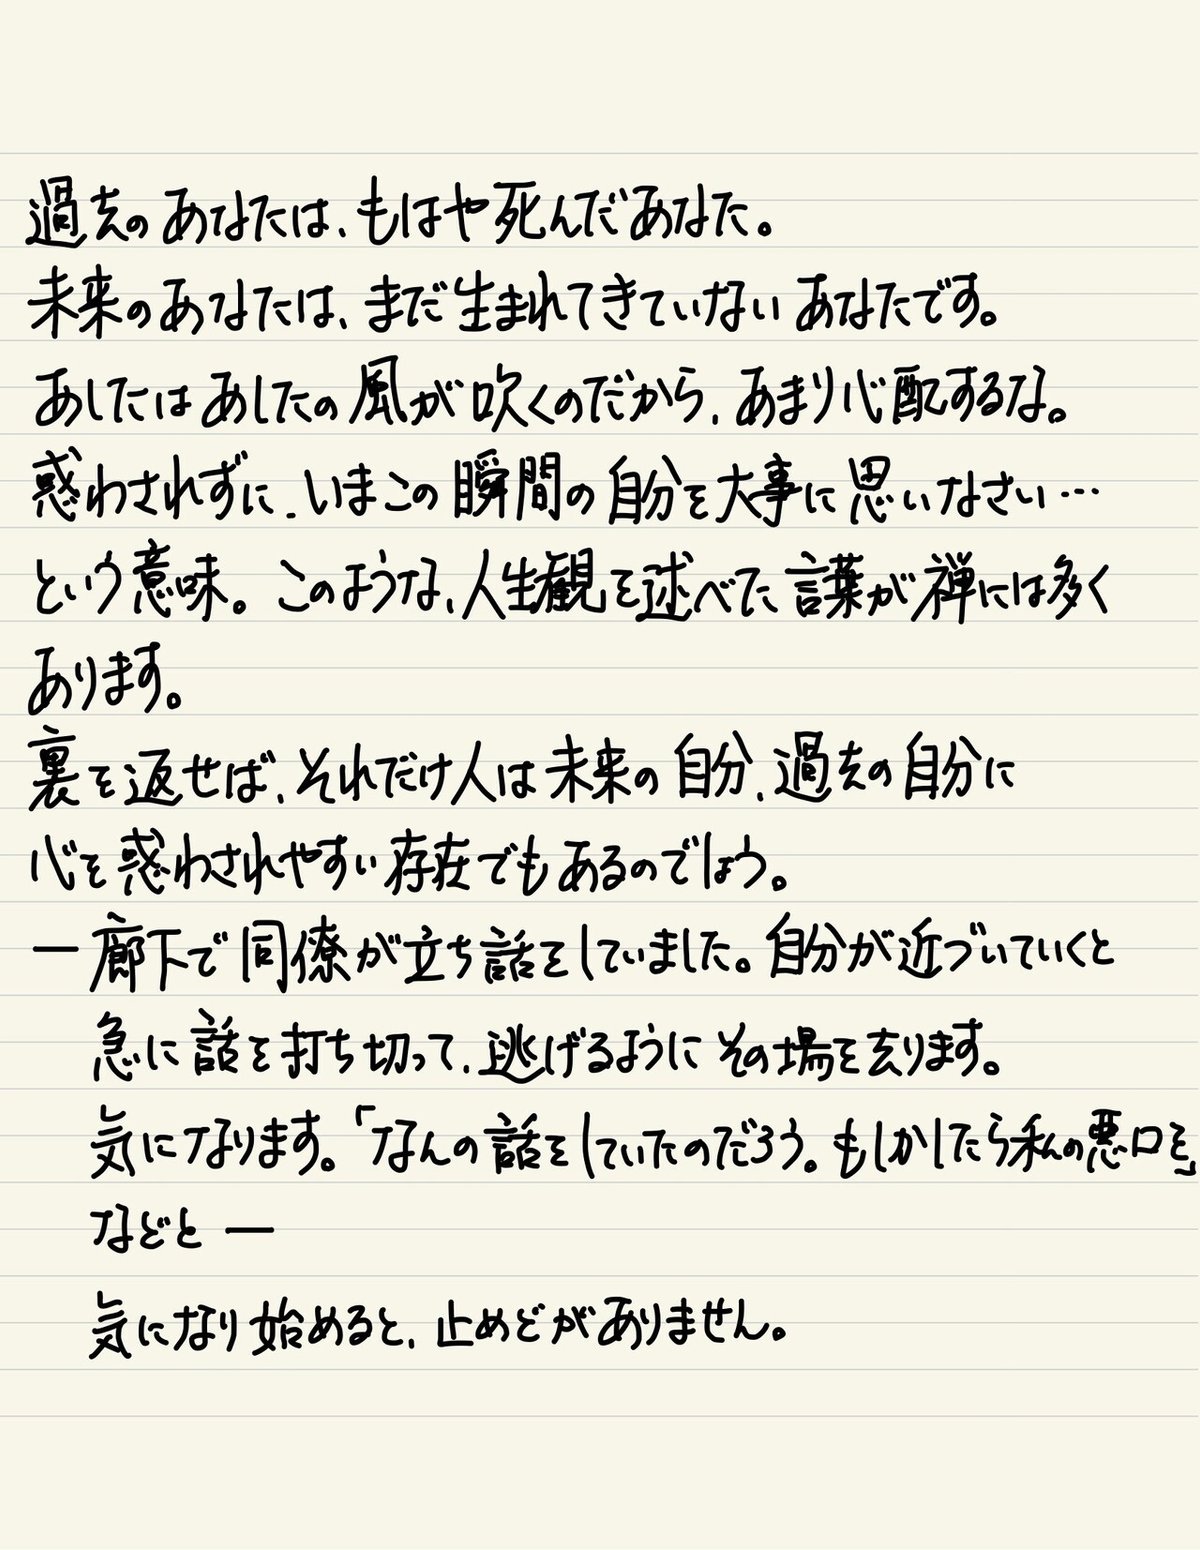 過去のあなたは、もはや死んだあなた。
未来のあなたは、まだ生まれてきていないあなたです。
あしたはあしたの風が吹くのだから、あまり心配するな。
惑わされずに、いまこの瞬間の自分を大事に思いなさい…
という意味。このような、人生観を述べた言葉が禅には多く
あります。
裏を返せば、それだけ人は未来の自分、過去の自分に
心を惑わされやすい存在でもあるのでしょう。
― 廊下で同僚が立ち話をしていました。自分が近づいていくと
急に話を打ち切って、逃げるようにその場を去ります。
気になります。「なんの話をしていたのだろう。もしかしたら私の悪口を」
などと ―
気になり始めると、止めどがありません。